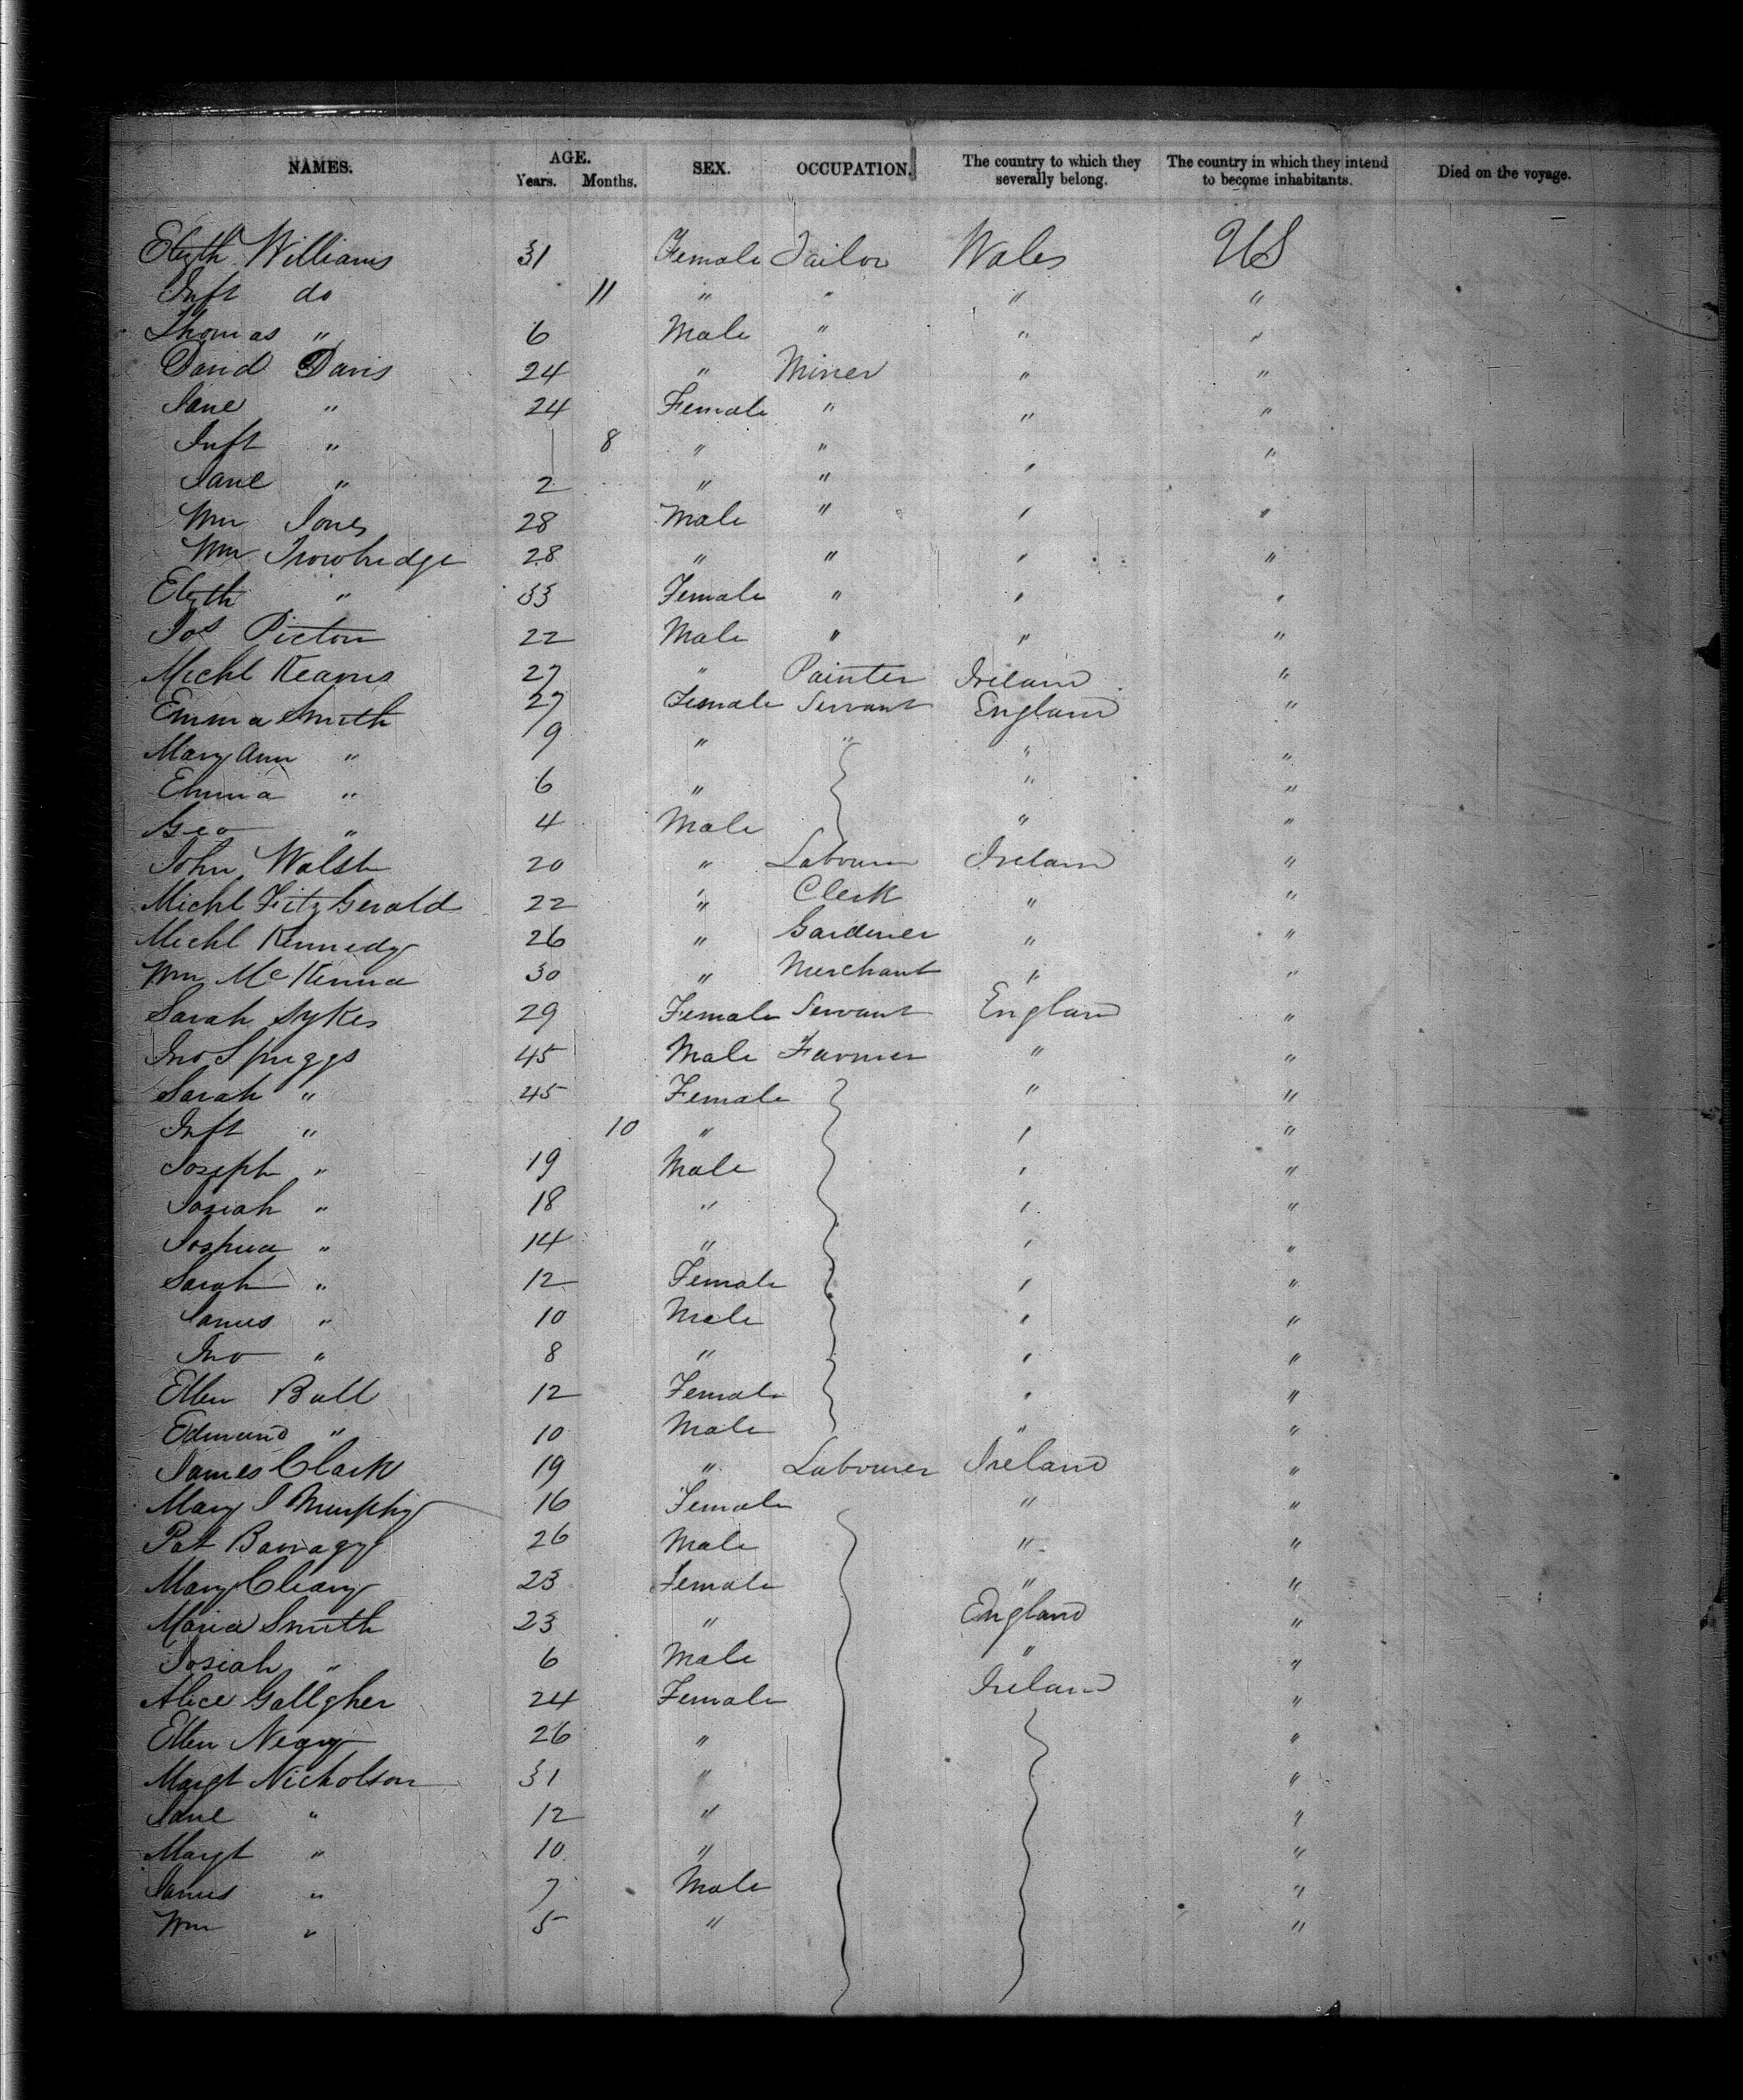 NAMES. AGE. Years. Months. SEX. OCCUPATION. The country to which they severally belong. The country in which they intend to become inhabitants. Died on the voyage.
Elizth Williams 31 Female Tailor Wales US
Inft do 11 " " " "
Thomas " 6 Male " " "
David Davis 24 " Miner " "
Jane " 24 Female " " "
Inft " 8 " " " "
Jane " 2 " " " "
Wm Jones 28 Male " " "
Wm Trowbridge 28 " " " "
Elizth " 33 Female " " "
Jos Picton 22 Male " " "
Michl Kearns 27 " Painter Ireland "
Emma Smith 27 Female Servant England "
Mary Ann " 9 " " " "
Emma " 6 " " "
Geo " 4 Male " "
John Walsh 20 " Labourer Ireland "
Michl FitzGerald 22 " Clerk " "
Michl Kennedy 26 " Gardener " "
Wm McKenna 30 " Merchant " "
Sarah Sykes 29 Female Servant England "
Jno Spriggs 45 Male Farmer " "
Sarah " 45 Female " "
Inft " 10 " " "
Joseph " 19 Male " "
Josiah " 18 " " "
Joshua " 14 " " "
Sarah " 12 Female " "
James " 10 Male " "
Jno " 8 " " "
Ellen Ball 12 Female " "
Edmund " 10 Male " "
James Clark 19 " Labourer Ireland "
Mary J Murphy 16 Female " "
Pat 26 Male " "
Mary Cleary 23 Female " "
Maria Smith 23 " England "
Josiah " 6 Male " "
Alice Gallgher 24 Female Ireland "
Ellen 26 " "
Margt Nicholson 31 " "
Jane " 12 " "
Margt " 10 " "
James " 7 Male "
Wm " 5 " "